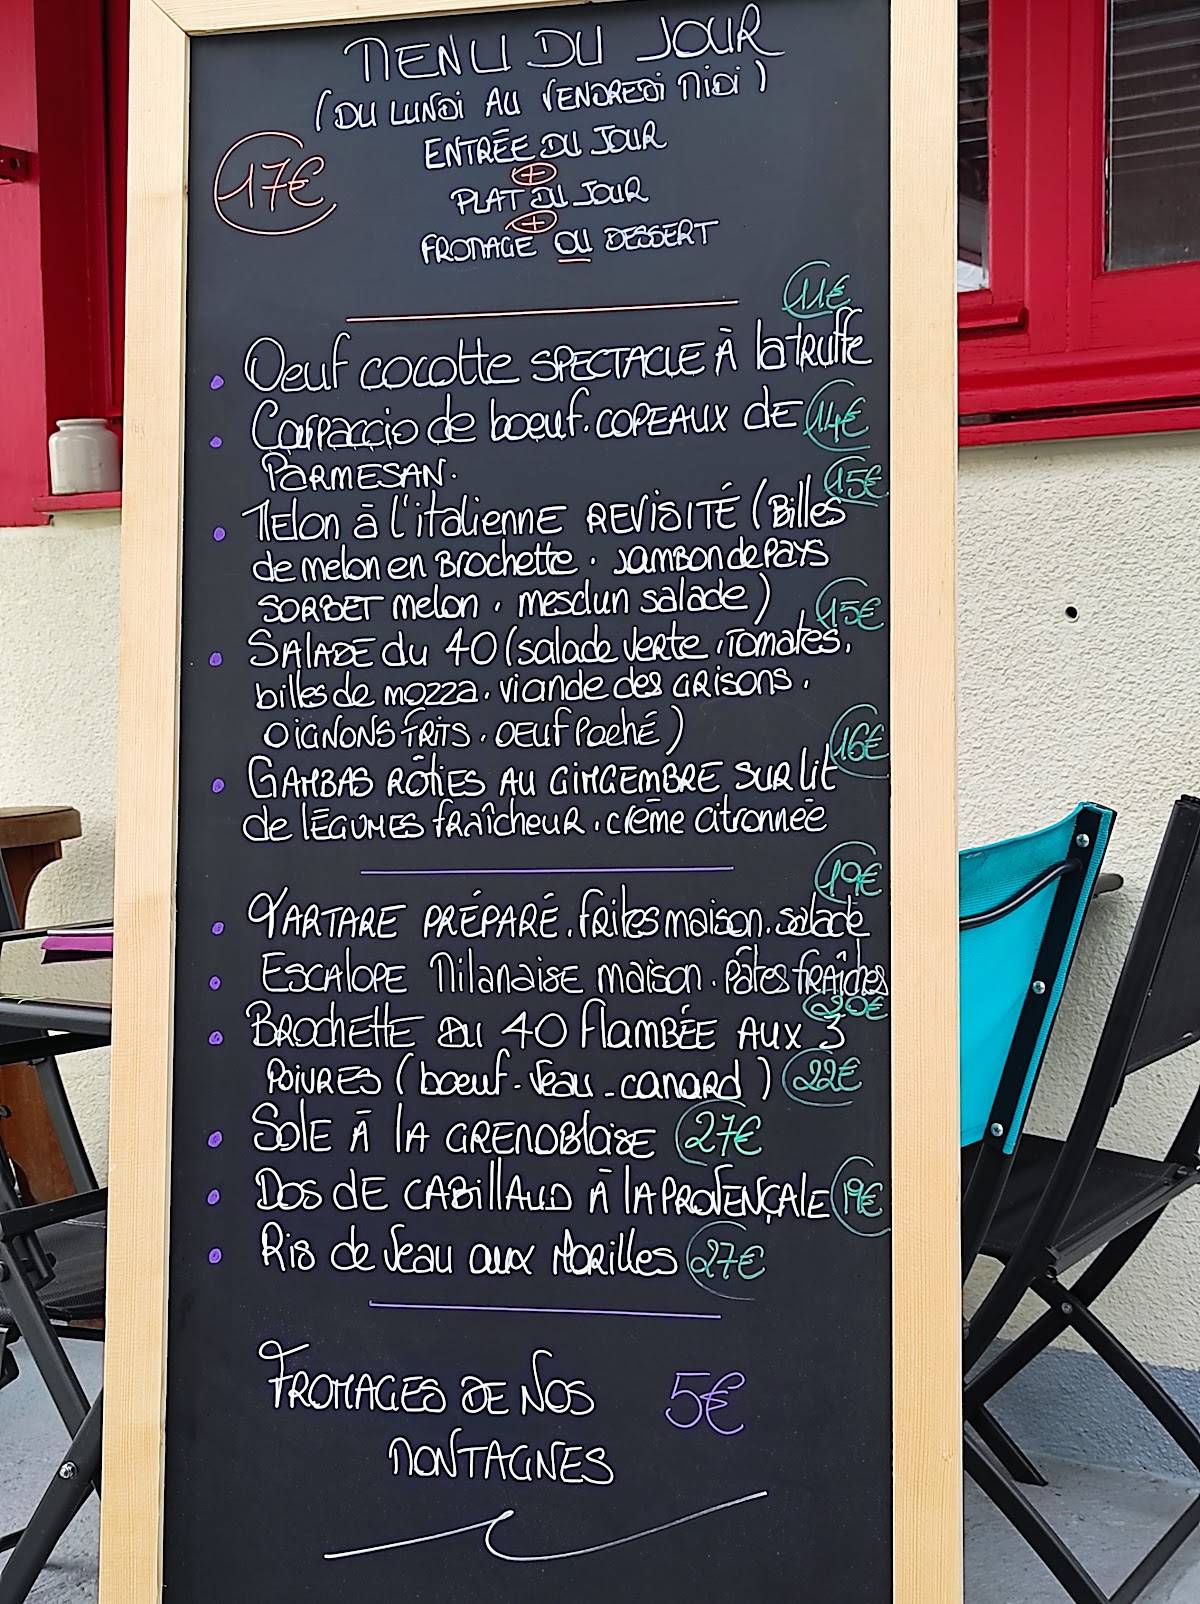 MENU DU JOUR
(DU LUNDI AU VENDREDI MIDI)
17€
ENTRÉE DU JOUR
+
PLAT DU JOUR
+
FROMAGE OU DESSERT
11€
• Oeuf cocotte SPECTACLE À la TRuffe
• Carpaccio de boeuf. COPEAUX dE 14€
PARMESAN.
15€
• MElon à l'italiennE REViSITÉ (Billes
de melon en Brochette. JAMBON de PAYS
SORBET melon, mesclun salade)
15€
• SALADE du 40 (salade VERTE, Tomates,
billes de mozza, viande des GRISONS,
OIGNONS FRITS, OEUF Poché)
16€
• GAMBAS RÔTIES AU GINGEMBRE SUR lit
de LÉGUMES FRAÎCHEUR, crème citronnée
19€
• TARTARE PRÉPARÉ. FRites maison. salade
• ESCALOPE Milanaise maison. Pâtes FRAÎches
20€
• BROCHETTE DU 40 flAMBÉE AUX 3
POIVRES (boeuf - Veau - canard) 22€
• SOLE À LA GRENOBloise 27€
• DOS dE CABillAUD À LA PROVENÇALE 19€
• Ris de Veau aux MORILLES 27€
FROMAGES DE NOS 5€
MONTAGNES